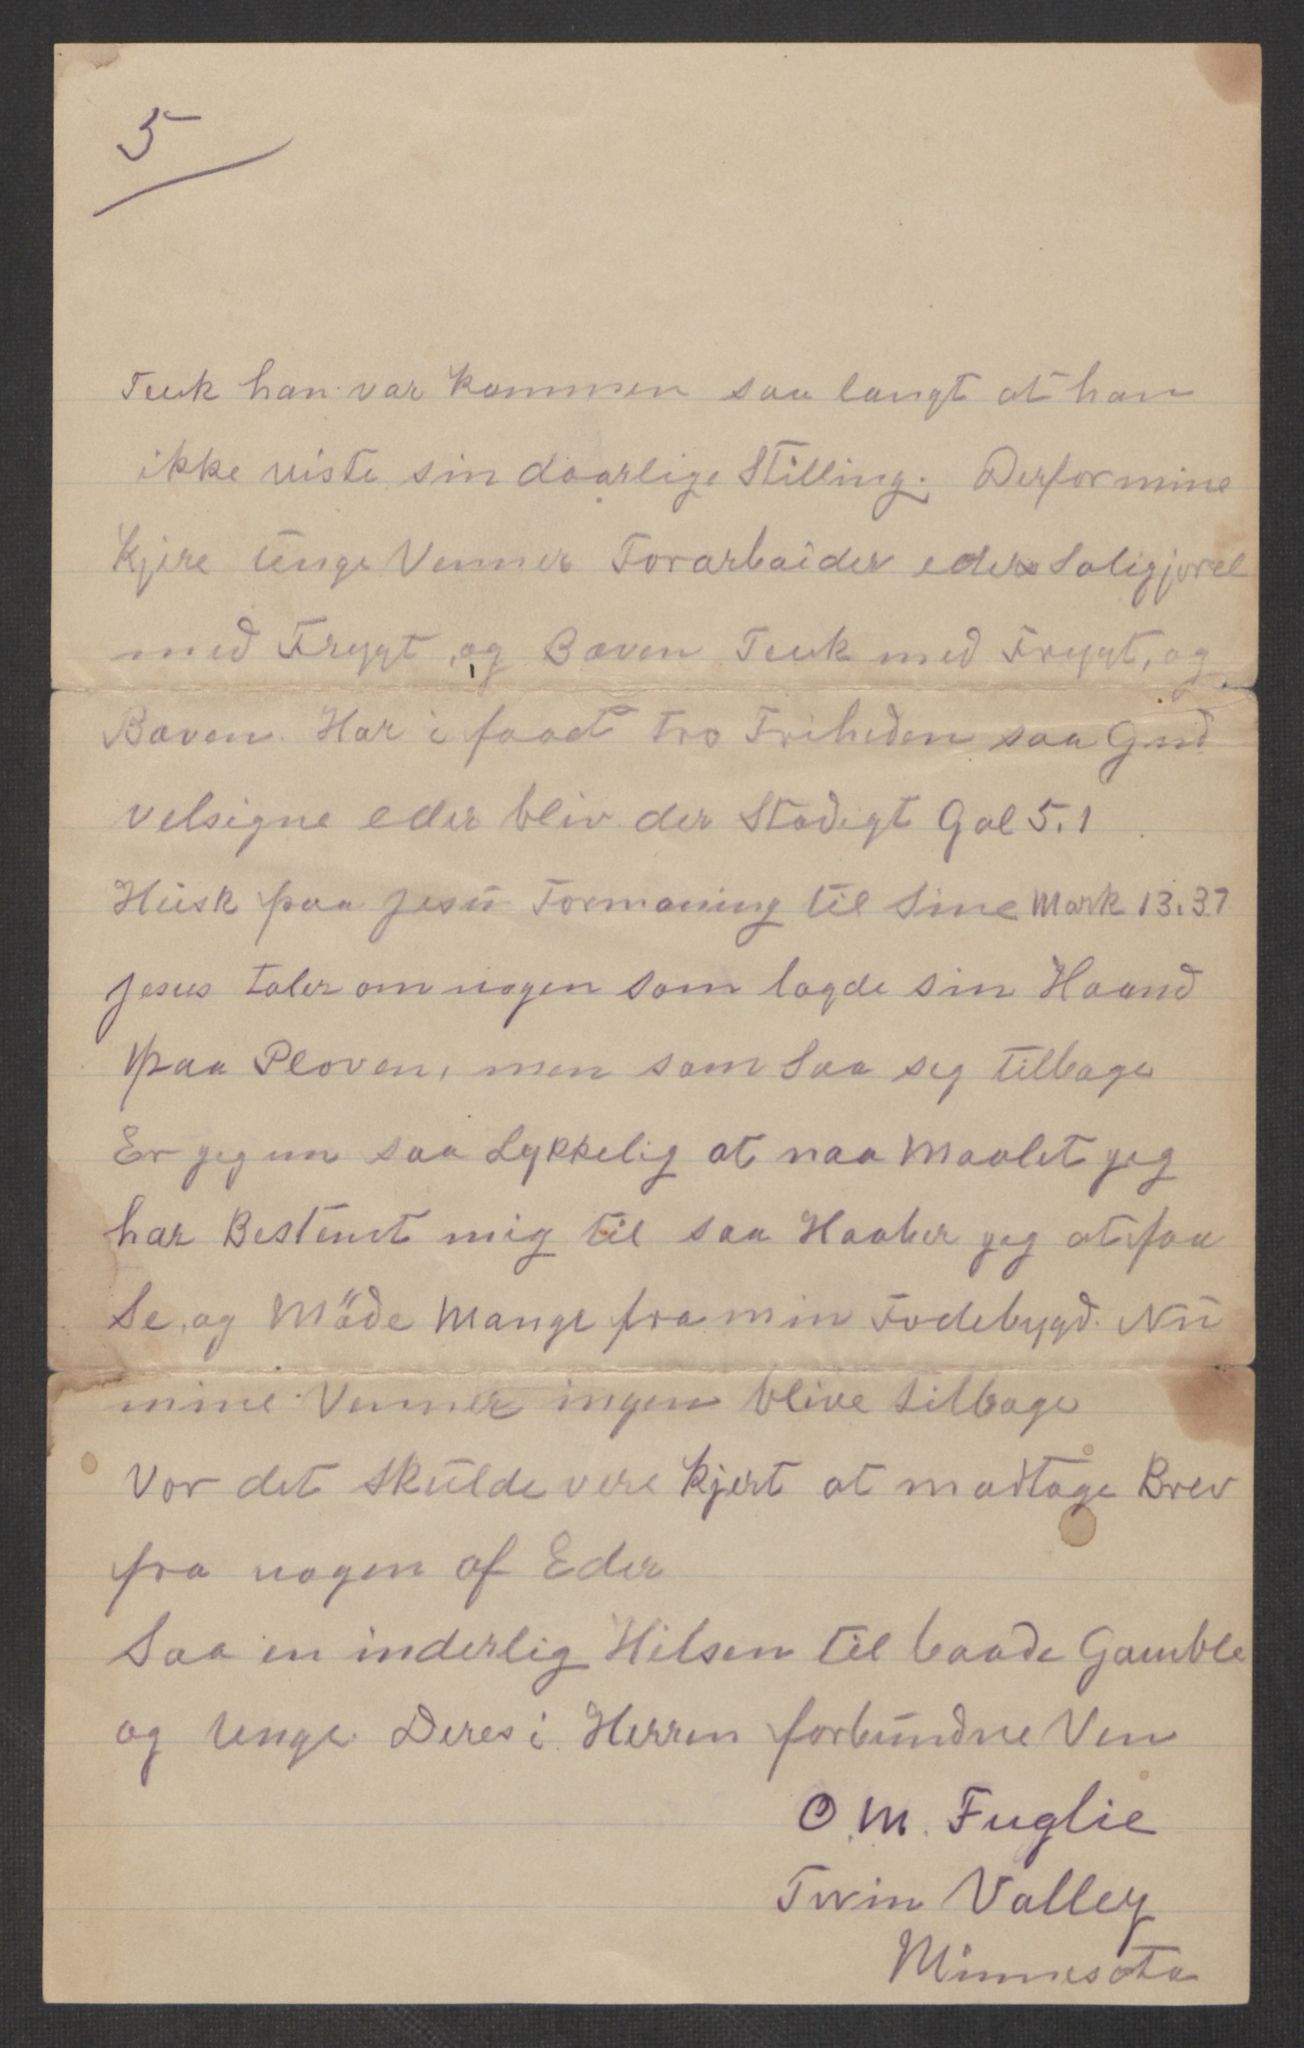 5
Tenk han var kommen saa langt at han
ikke viste sin daarlige Stilling. Derfor mine
Kjere unge Venner Forarbaider eders Saligjorel
med Frygt, og Bæven Tenk med Frygt, og
Bæven. Har i faaet tro Friheden saa Gud
velsigne eder bliv der Stadigt Gal 5.1
Husk paa Jesu Formaning til Sine Mark 13.37
Jesus taler om nogen som lagde sin Haand
paa Ploven, men som Saa seg tilbage
Er jeg nu saa Lykkelig at naa Maalet jeg
har Bestemt mig til saa Haaber jeg at faa
Se, og Møde Mange fra min Fodebygd. Nu
mine Venner ingen blive tilbage
Vor det skulde vere kjert at modtage Brev
fra nogen af Eder
Saa en inderlig Hilsen til baade Gamble
og Unge Deres i Herren forbundne Ven
O. M. Fuglie
Twin Valley
Minnesota